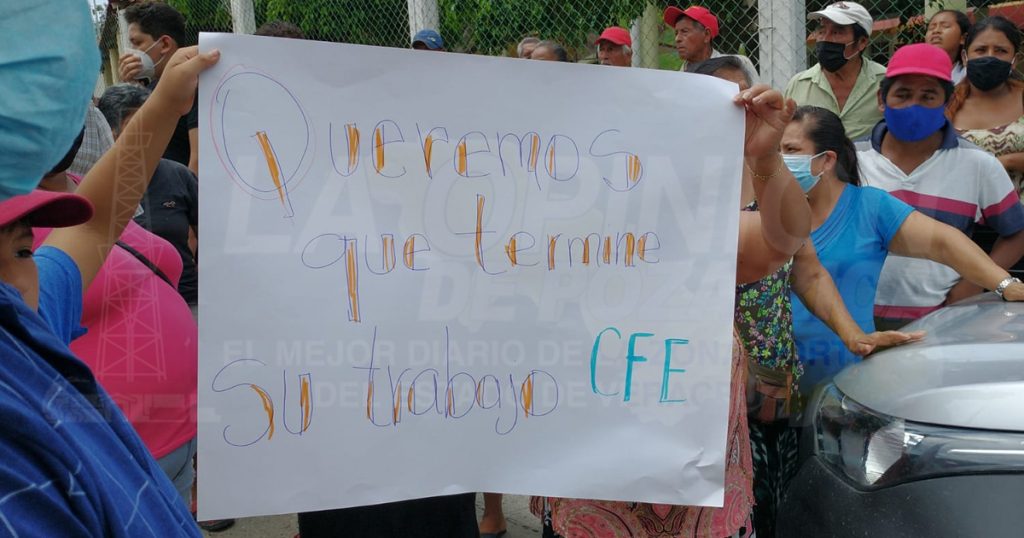 Queremos
que termine
su trabajo CFE
LA OPINIÓN
DE POZA
EL MEJOR DIARIO DE
DE VERACRUZ